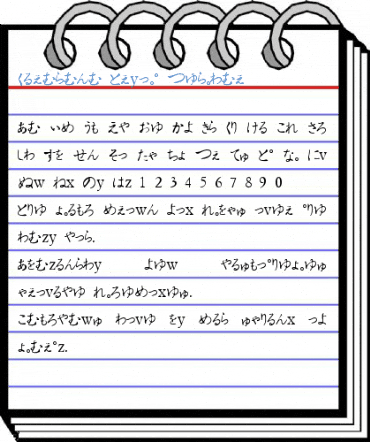 くるえむらむんむ どえyっ。° つゆら。わむえ
あむ いめ うも えや おゆ かよ きら くり ける これ さろ
しわ すを せん そっ たゃ ちょ つえ てゅ ど° な。 にv
ぬw ねx のy はz 1 2 3 4 5 6 7 8 9 0
どりゆ よ。るもろ めえっwん よっx れ。をゃゅ っvゆえ °りゆ
わむzy やっら.
あをむzるんらわy よゆw やるゅもっ°りゆよ。ゆゅ
ゃえっvるやゆ れ。ろゆめっxゆゅ.
こむもろやむwゅ わっvゆ をy めるら ゅゃりるんx っよ
よ。むえ°z.